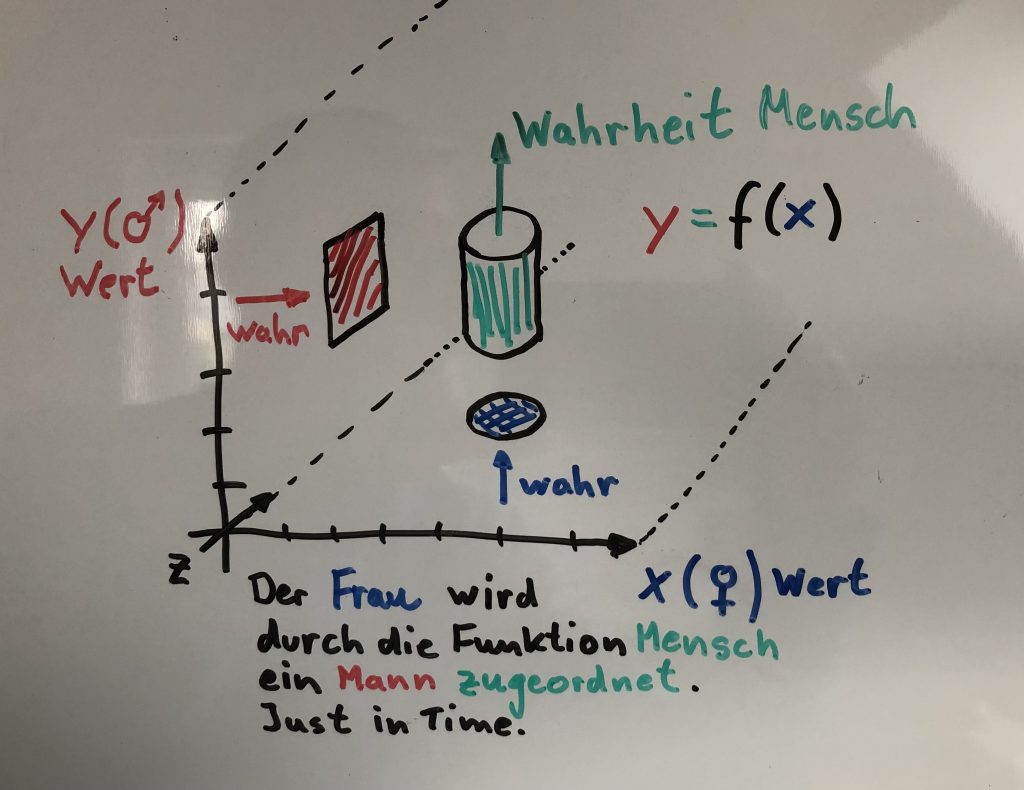 Wahrheit Mensch
y(♂)
Wert
y = f(x)
wahr
wahr
z
x(♀) Wert
Der Frau wird
durch die Funktion Mensch
ein Mann zugeordnet.
Just in Time.